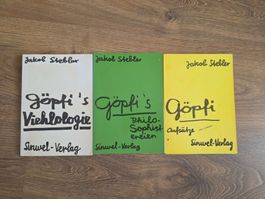 Jakob Stebler
Göpfi's
Viehlologie
Sinwel-Verlag
Jakob Stebler
Göpfi's
Philo-
Sophist
ereien
Sinwel-Verlag
Jakob Stebler
Göpfi
Aufsätze
Sinwel-Verlag